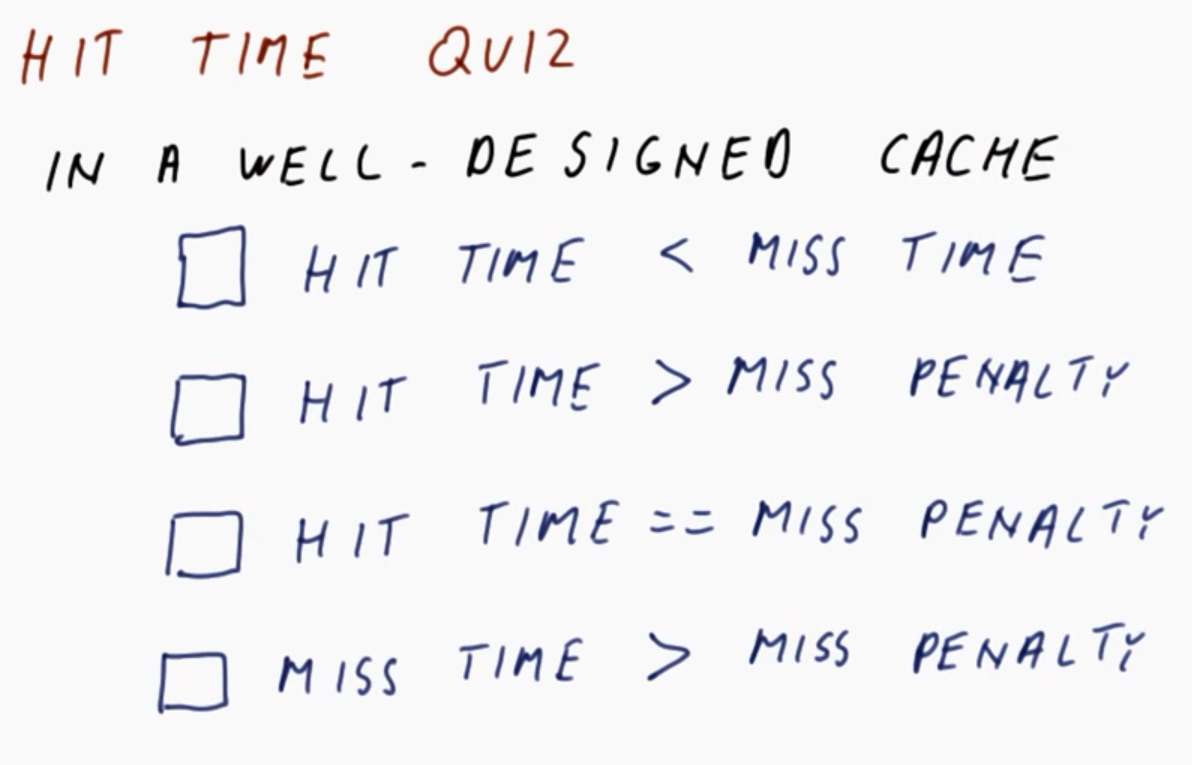 HIT TIME QUIZ
IN A WELL-DESIGNED CACHE
HIT TIME < MISS TIME
HIT TIME > MISS PENALTY
HIT TIME == MISS PENALTY
MISS TIME > MISS PENALTY